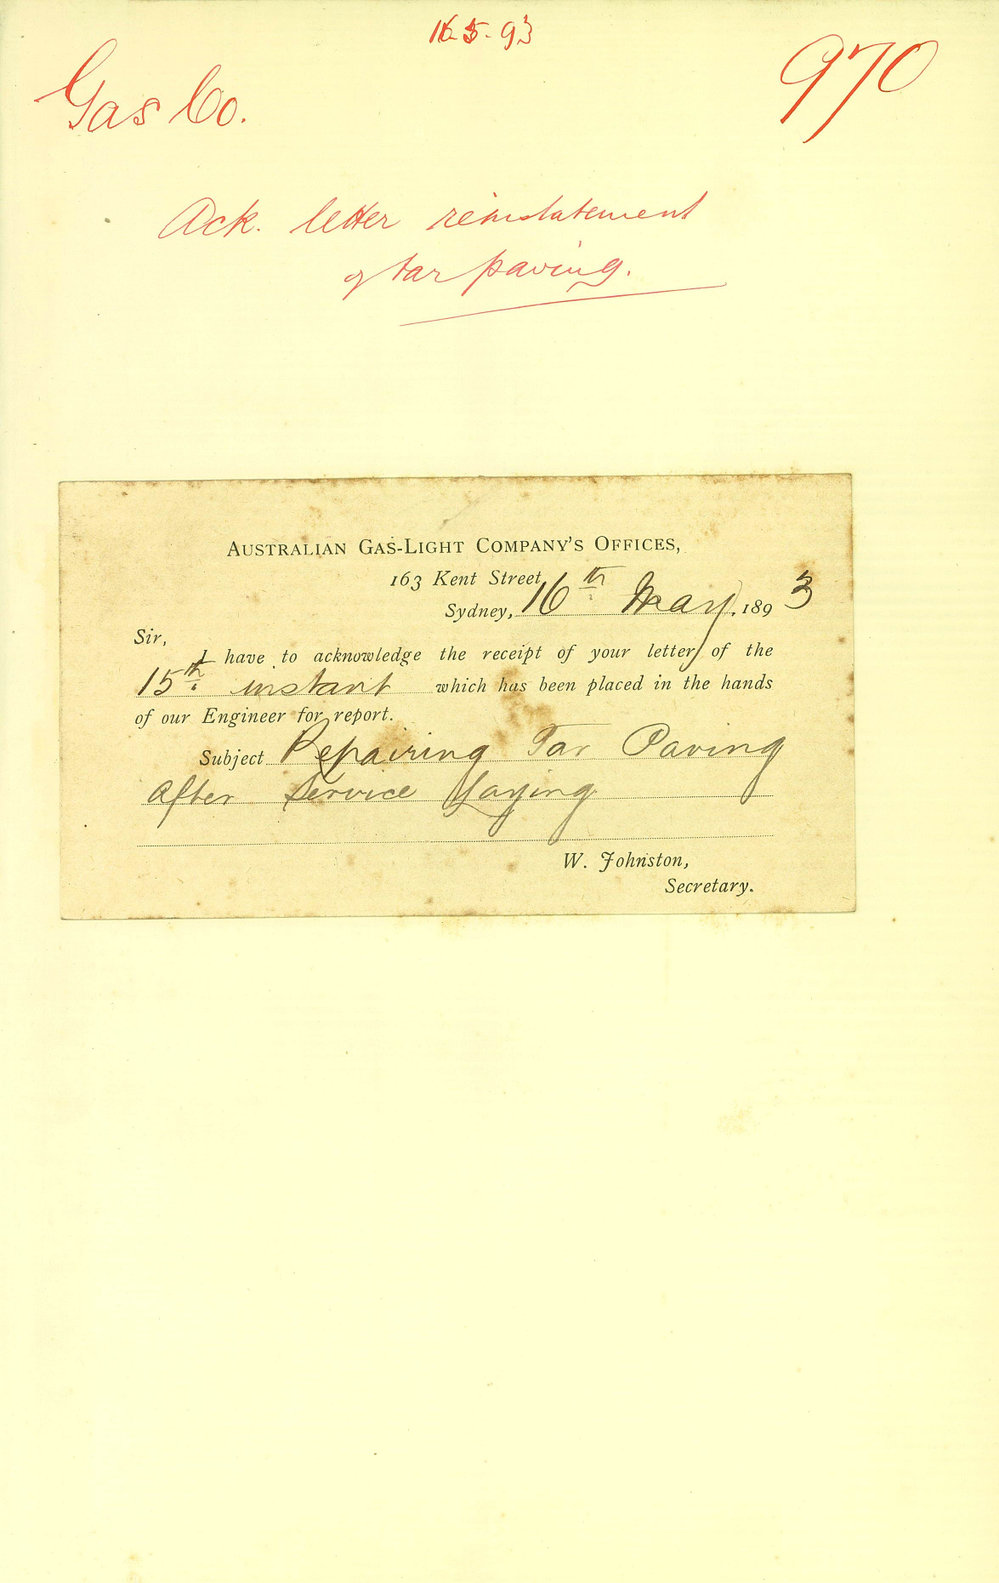 16-5-93
Gas Co.
970
Ack. letter reinstatement
of tar paving.
AUSTRALIAN GAS-LIGHT COMPANY'S OFFICES,
163 Kent Street,
Sydney, 16th May, 1893
Sir,
I have to acknowledge the receipt of your letter of the
15th instant which has been placed in the hands
of our Engineer for report.
Subject Repairing Tar Paving
After Service Laying
W. Johnston,
Secretary.